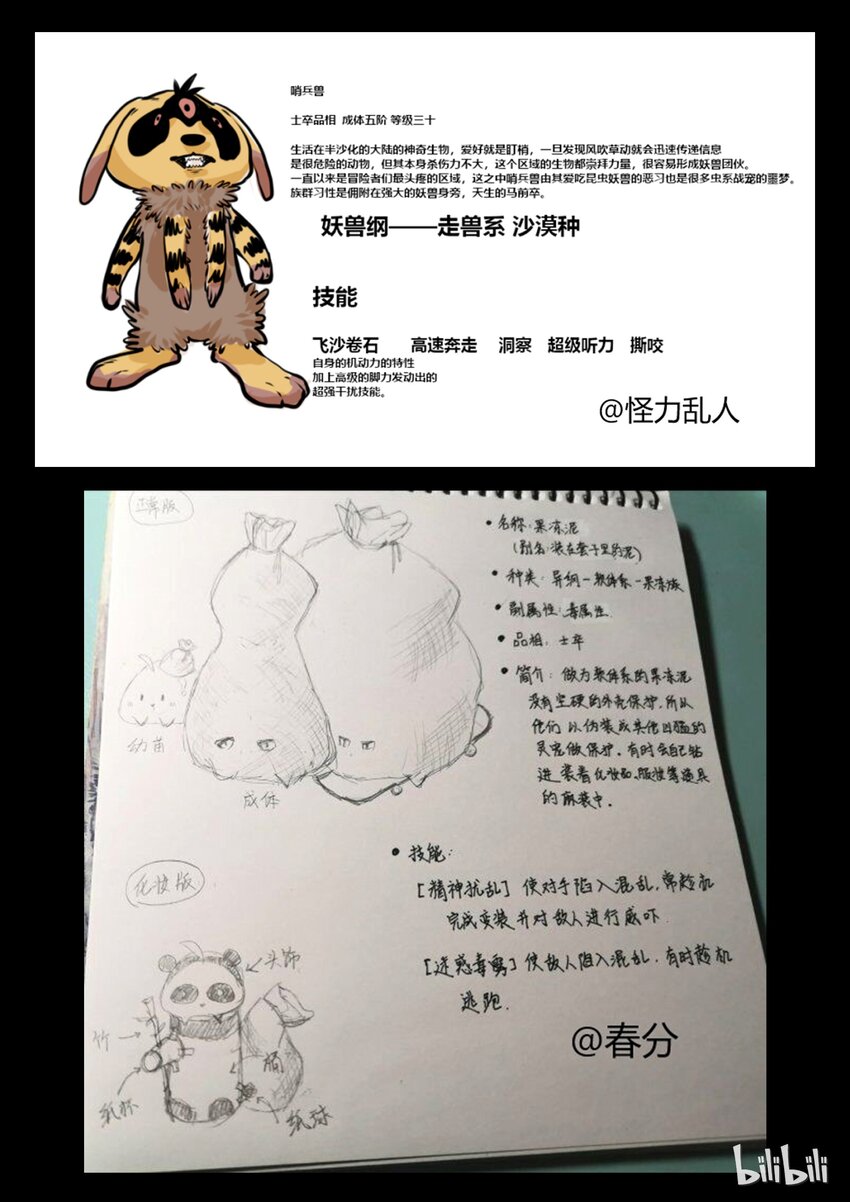 哨兵兽
士卒品相 成体五阶 等级三十
生活在半沙化的大陆的神奇生物，爱好就是盯梢，一旦发现风吹草动就会迅速传递信息
是很危险的动物，但其本身杀伤力不大，这个区域的生物都崇拜力量，很容易形成妖兽团伙。
一直以来是冒险者们最头疼的区域，这之中哨兵兽由其爱吃昆虫妖兽的恶习也是很多虫系战宠的噩梦。
族群习性是佣附在强大的妖兽身旁，天生的马前卒。
妖兽纲——走兽系 沙漠种
技能
飞沙卷石 高速奔走 洞察 超级听力 撕咬
自身的机动力的特性
加上高级的脚力发动出的
超强干扰技能。
@怪力乱人
正常版
名称：果冻泥
（别名：装在套子里的泥）
种类：异纲－软体系－果冻族
副属性：毒属性
品相：士卒
简介：做为软体系的果冻泥
没有坚硬的外壳保护，所以
他们以伪装成其他凶猛的
灵宠做保护。有时会自己钻
进装着化妆品、服装等道具
的麻袋中。
幼苗
成体
技能：
[精神扰乱] 使对手陷入混乱，常趁机
完成变装并对敌人进行威吓
[迷惑毒雾] 使敌人陷入混乱，有时趁机
逃跑.
化妆版
头饰
竹
纸杯
纸球
@春分
bilibili